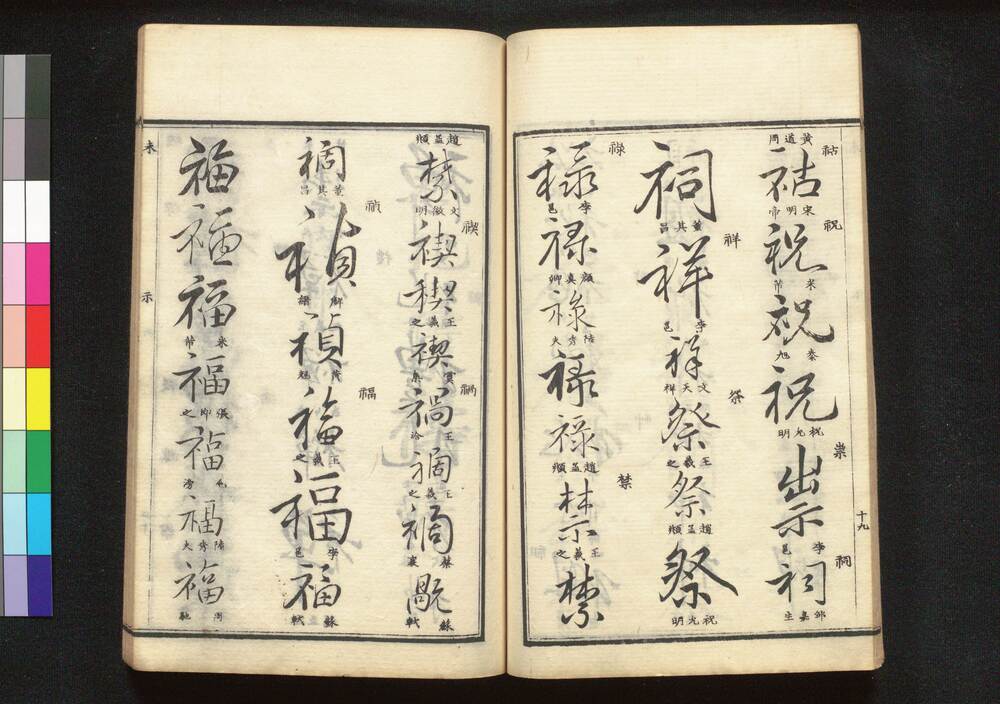 祜 祜 黃道周
祝 祝 宋明帝
祝 米芾
祝 秦旭
祝 祝允明
祟 祟 李邕
祠 祠
十九
祠 董其昌
祥 祥 李邕
祥 文天祥
祭 祭 王羲之
祭 趙孟頫
祭 祝允明
祿 祿 李邕
祿 顏真卿
祿 陸秀夫
祿
祿 趙孟頫
禁 禁 王羲之
禁
趙孟頫
禁 文徵明
禊 禊
禊 王羲之
禊
禍 禍
禍 王羲之
禍 蔡襄
蘇軾
禍 董其昌
禎 禎
禎
福 福 王羲之
福 李邕
福 蘇軾
福
福
福 米芾
福 張即之
福
福 陸秀夫
福
未
示